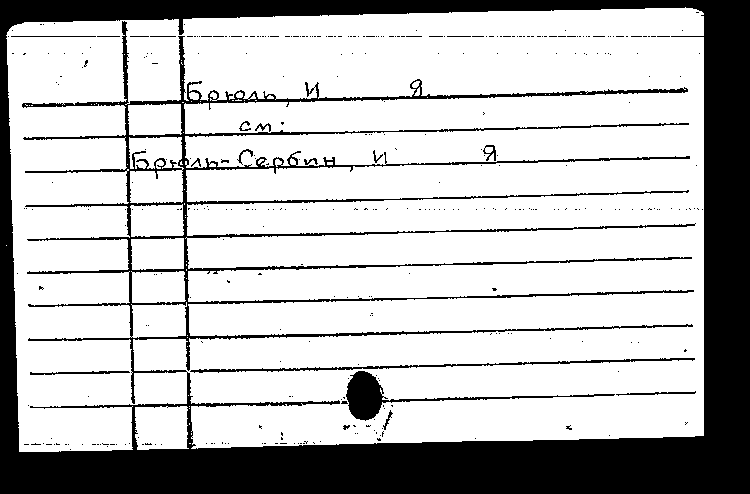 Брюль, И Я.
см:
Брюль-Сербин, И Я